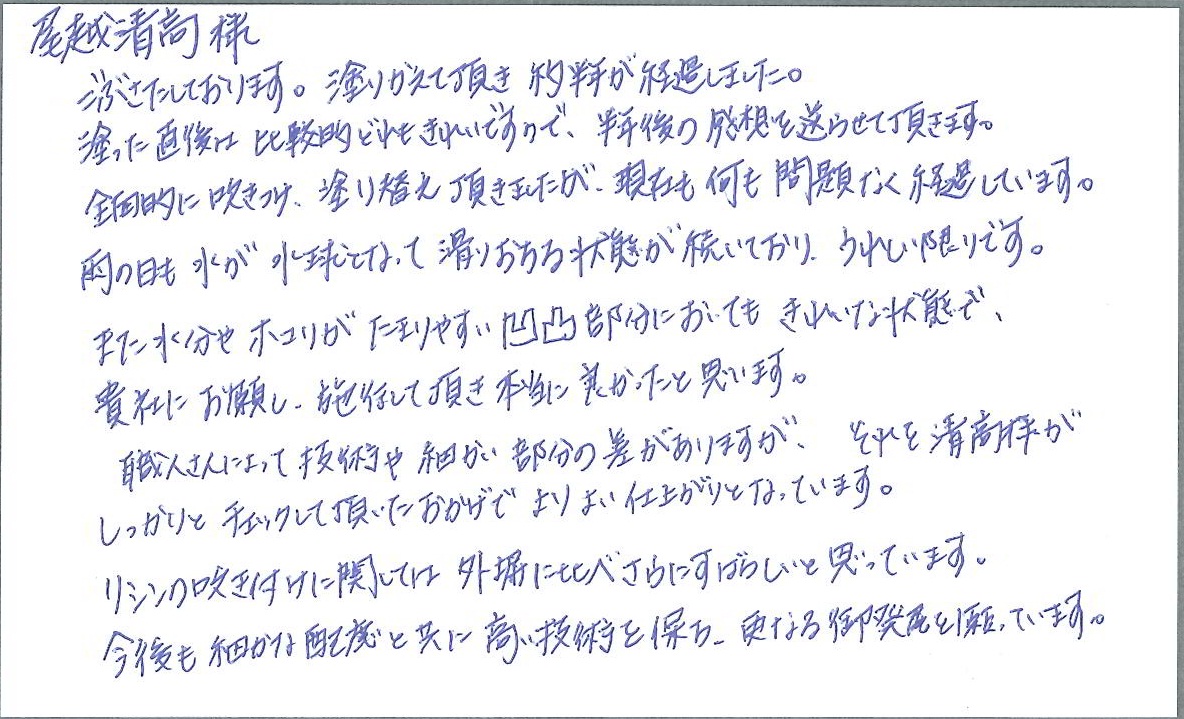 尾越清高様
ごぶさたしております。塗りかえて頂き約半年が経過しました。
塗った直後は比較的どれもきれいですので、半年後の感想を送らせて頂きます。
全面的に吹きつけ、塗り替え頂きましたが、現在も何も問題なく経過しています。
雨の日も水が水球となって滑りおちる状態が続いており、うれしい限りです。
また水分やホコリがたまりやすい凹凸部分においてもきれいな状態で、
貴社にお願し、施行して頂き本当に良かったと思います。
職人さんによって技術や細かい部分の差がありますが、それを清高様が
しっかりとチェックして頂いたおかげでよりよい仕上がりとなっています。
リシンの吹き付けに関しては外塀に比べさらにすばらしいと思っています。
今後も細かな配慮と共に高い技術を保ち、更なる御発展を願っています。